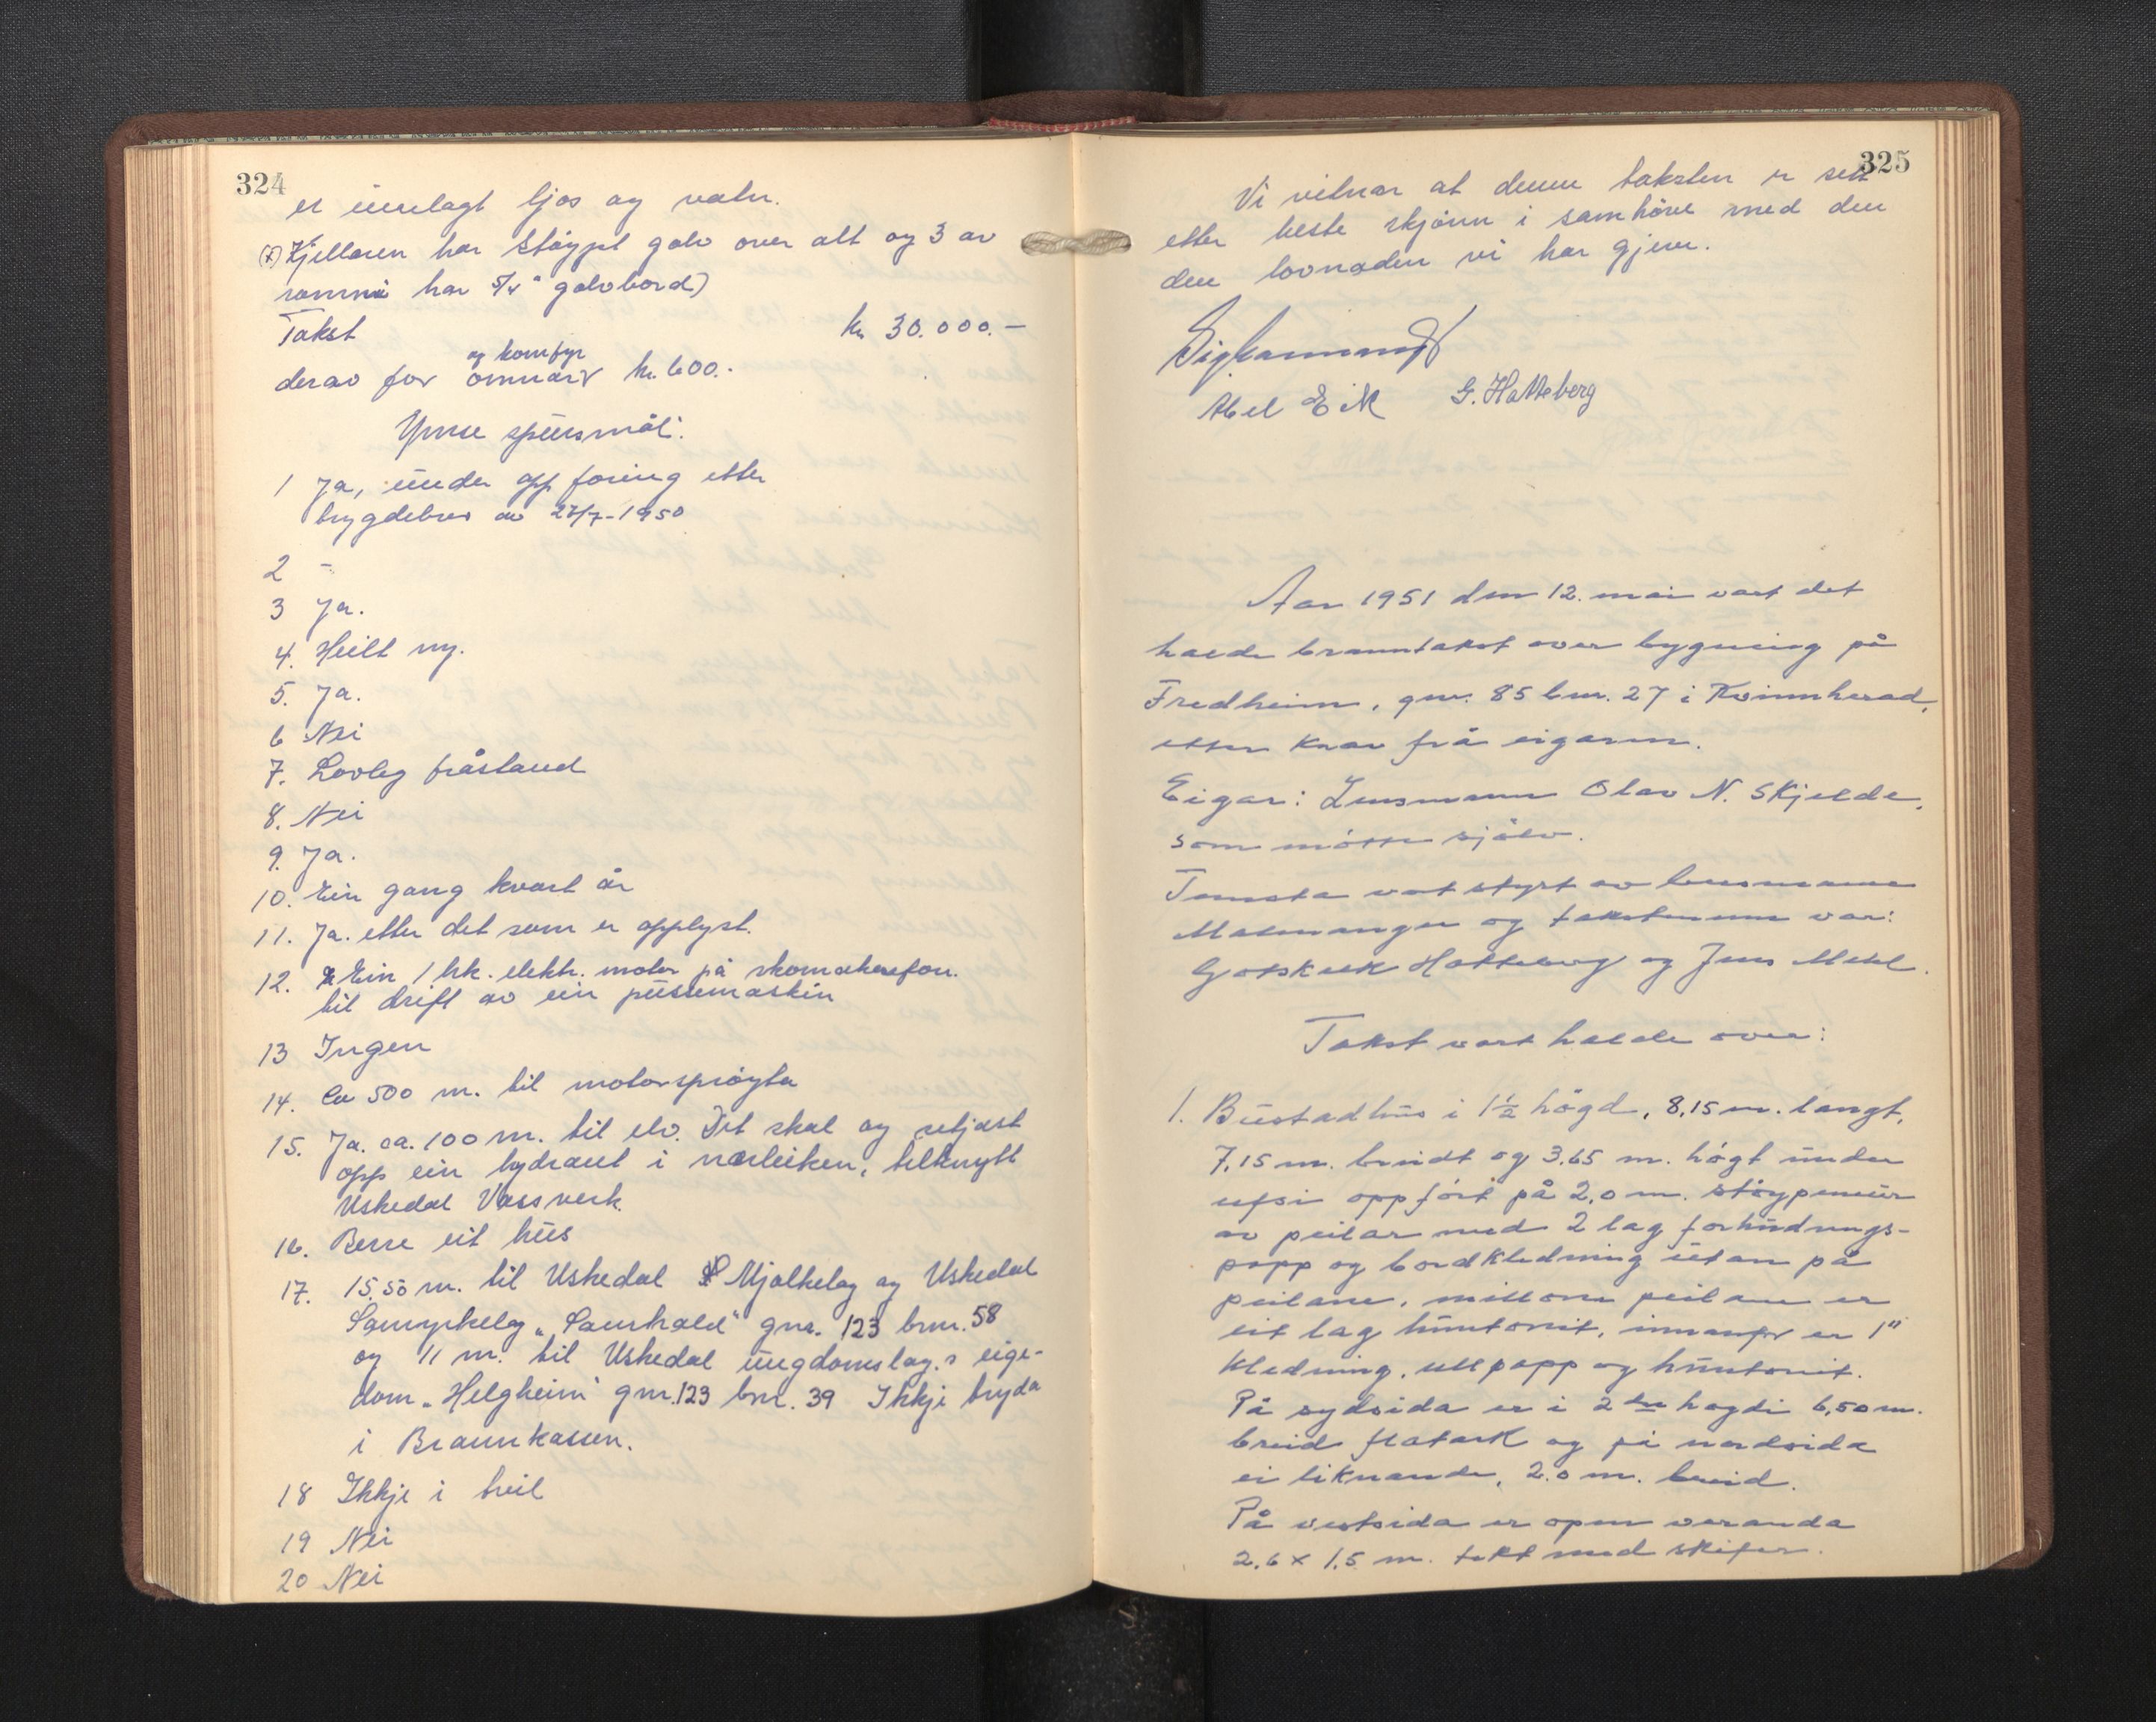 324
er innlagt ljos og vatn.
(x) Kjellaren har støypt golv over alt og 3 av
rommå har 5/4" golvbord)
Takst kr 30.000.-
og komfyr
derav for omnar kr. 600.-
Ymse spursmål:
1 Ja, under oppføring etter
bygdebrev av 27/7-1950
2 -
3 Ja.
4. Heilt ny.
5. Ja.
6 Nei
7. Lovleg fråstand
8. Nei
9. Ja.
10. Ein gang kvart år
11. Ja. etter det som er opplyst.
12. Ein 1 hk. elektr. motor på skomakerefor.
til drift av ein pussemaskin
13 Ingen
14. Ca 500 m. til motorsprøyta
15. Ja. ca. 100 m. til elv. Det skal og setjast
opp ein hydrant i nærleiken, tilknytt
Uskedal Vassverk.
16. Berre eit hus
17. 15.50 m. til Uskedal Mjølkelag og Uskedal
Samyrkelag „Samhald" gnr. 123 bnr. 58
og 11 m. til Uskedal ungdomslag.s eige-
dom „Helgheim" gnr. 123 bnr. 39 Ikkje tryda
i Brannkassen.
18 Ikkje i tvil
19 Nei
20 Nei
325
Vi vitnar at denne taksten er sett
etter beste skjønn i samhøve med den
den lovnaden vi har gjeve.
Abel Eik G. Hatteberg
Aar 1951 den 12. mai vart det
halde branntakst over bygning på
Fredheim, gnr. 85 bnr. 27 i Kvinnherad,
etter krav frå eigaren.
Eigar: Lensmann Olav N. Skjelde,
som møtte sjølv.
Temsta vart styrt av lensmann
Malmanger og takstmenn var:
Gotskalk Hatteberg og Jens Mehl.
Takst vart halde over:
1. Bustadhus i 1½ høgd, 8,15 m. langt,
7,15 m. breidt og 3,65 m. høgt under
ufsi oppført på 2,0 m. støypemur
av peilar med 2 lag forhudnings-
papp og bordkledning utan på
peilane, millom peilane er
eit lag huntonit, innanfor er 1"
kledning, ullpapp og huntonit.
På sydsida er i 2dre høgdi 6,50 m.
breid flatark og på nordsida
ei liknande, 2.0 m. breid.
På vestsida er open veranda
2,6 x 1,5 m. tekt med skifer.